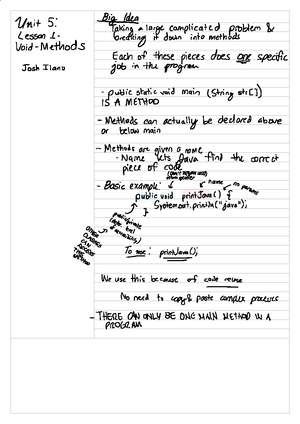 Unit 5:
Lesson 1-
Void-Methods
Josh Ilano
Big Idea
Taking a large complicated problem &
breaking it down into methods
Each of these pieces does one specific
job in the program
- public static void main (String str[])
IS A METHOD
- Methods can actually be declared above
or below main
- Methods are given a name
- Name lets Java find the correct
piece of code
- Basic example:
name
no params
public void printJava() {
System.out.println("java");
}
To use: printJava();
We use this because of code reuse
No need to copy & paste complex processes
- THERE CAN ONLY BE ONE MAIN METHOD IN A
PROGRAM